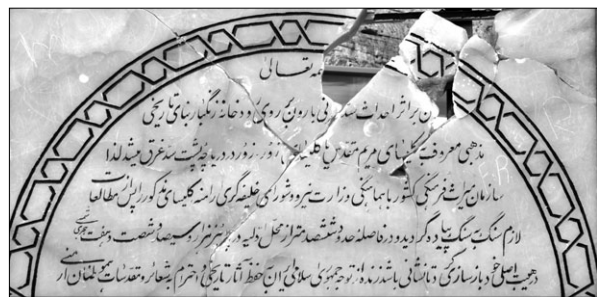 سمه تعالی
ن بر اثر احداث سد بارون بر روی رودخانه زنگمار بنای تاریخی
مذهبی معروف به کلیسای مریم مقدس یا کلیسای زور زور در دریاچه پشت سد غرق میشد لذا
سازمان میراث فرهنگی کشور با هماهنگی وزارت نیرو و شورای خلیفه گری ارامنه کلیسای مذکور را پس از مطالعات
لازم سنگ به سنگ پیاده گردید و در فاصله حدود ششصد متر از محل اولیه در هزار و سیصد و شصت و هفت هجری شمسی
در جهت اصلی خود بازسازی گردید تا نشانی باشد زنده از توجه جمهوری اسلامی ایران به حفظ آثار تاریخی و احترام به شعائر و مقدسات